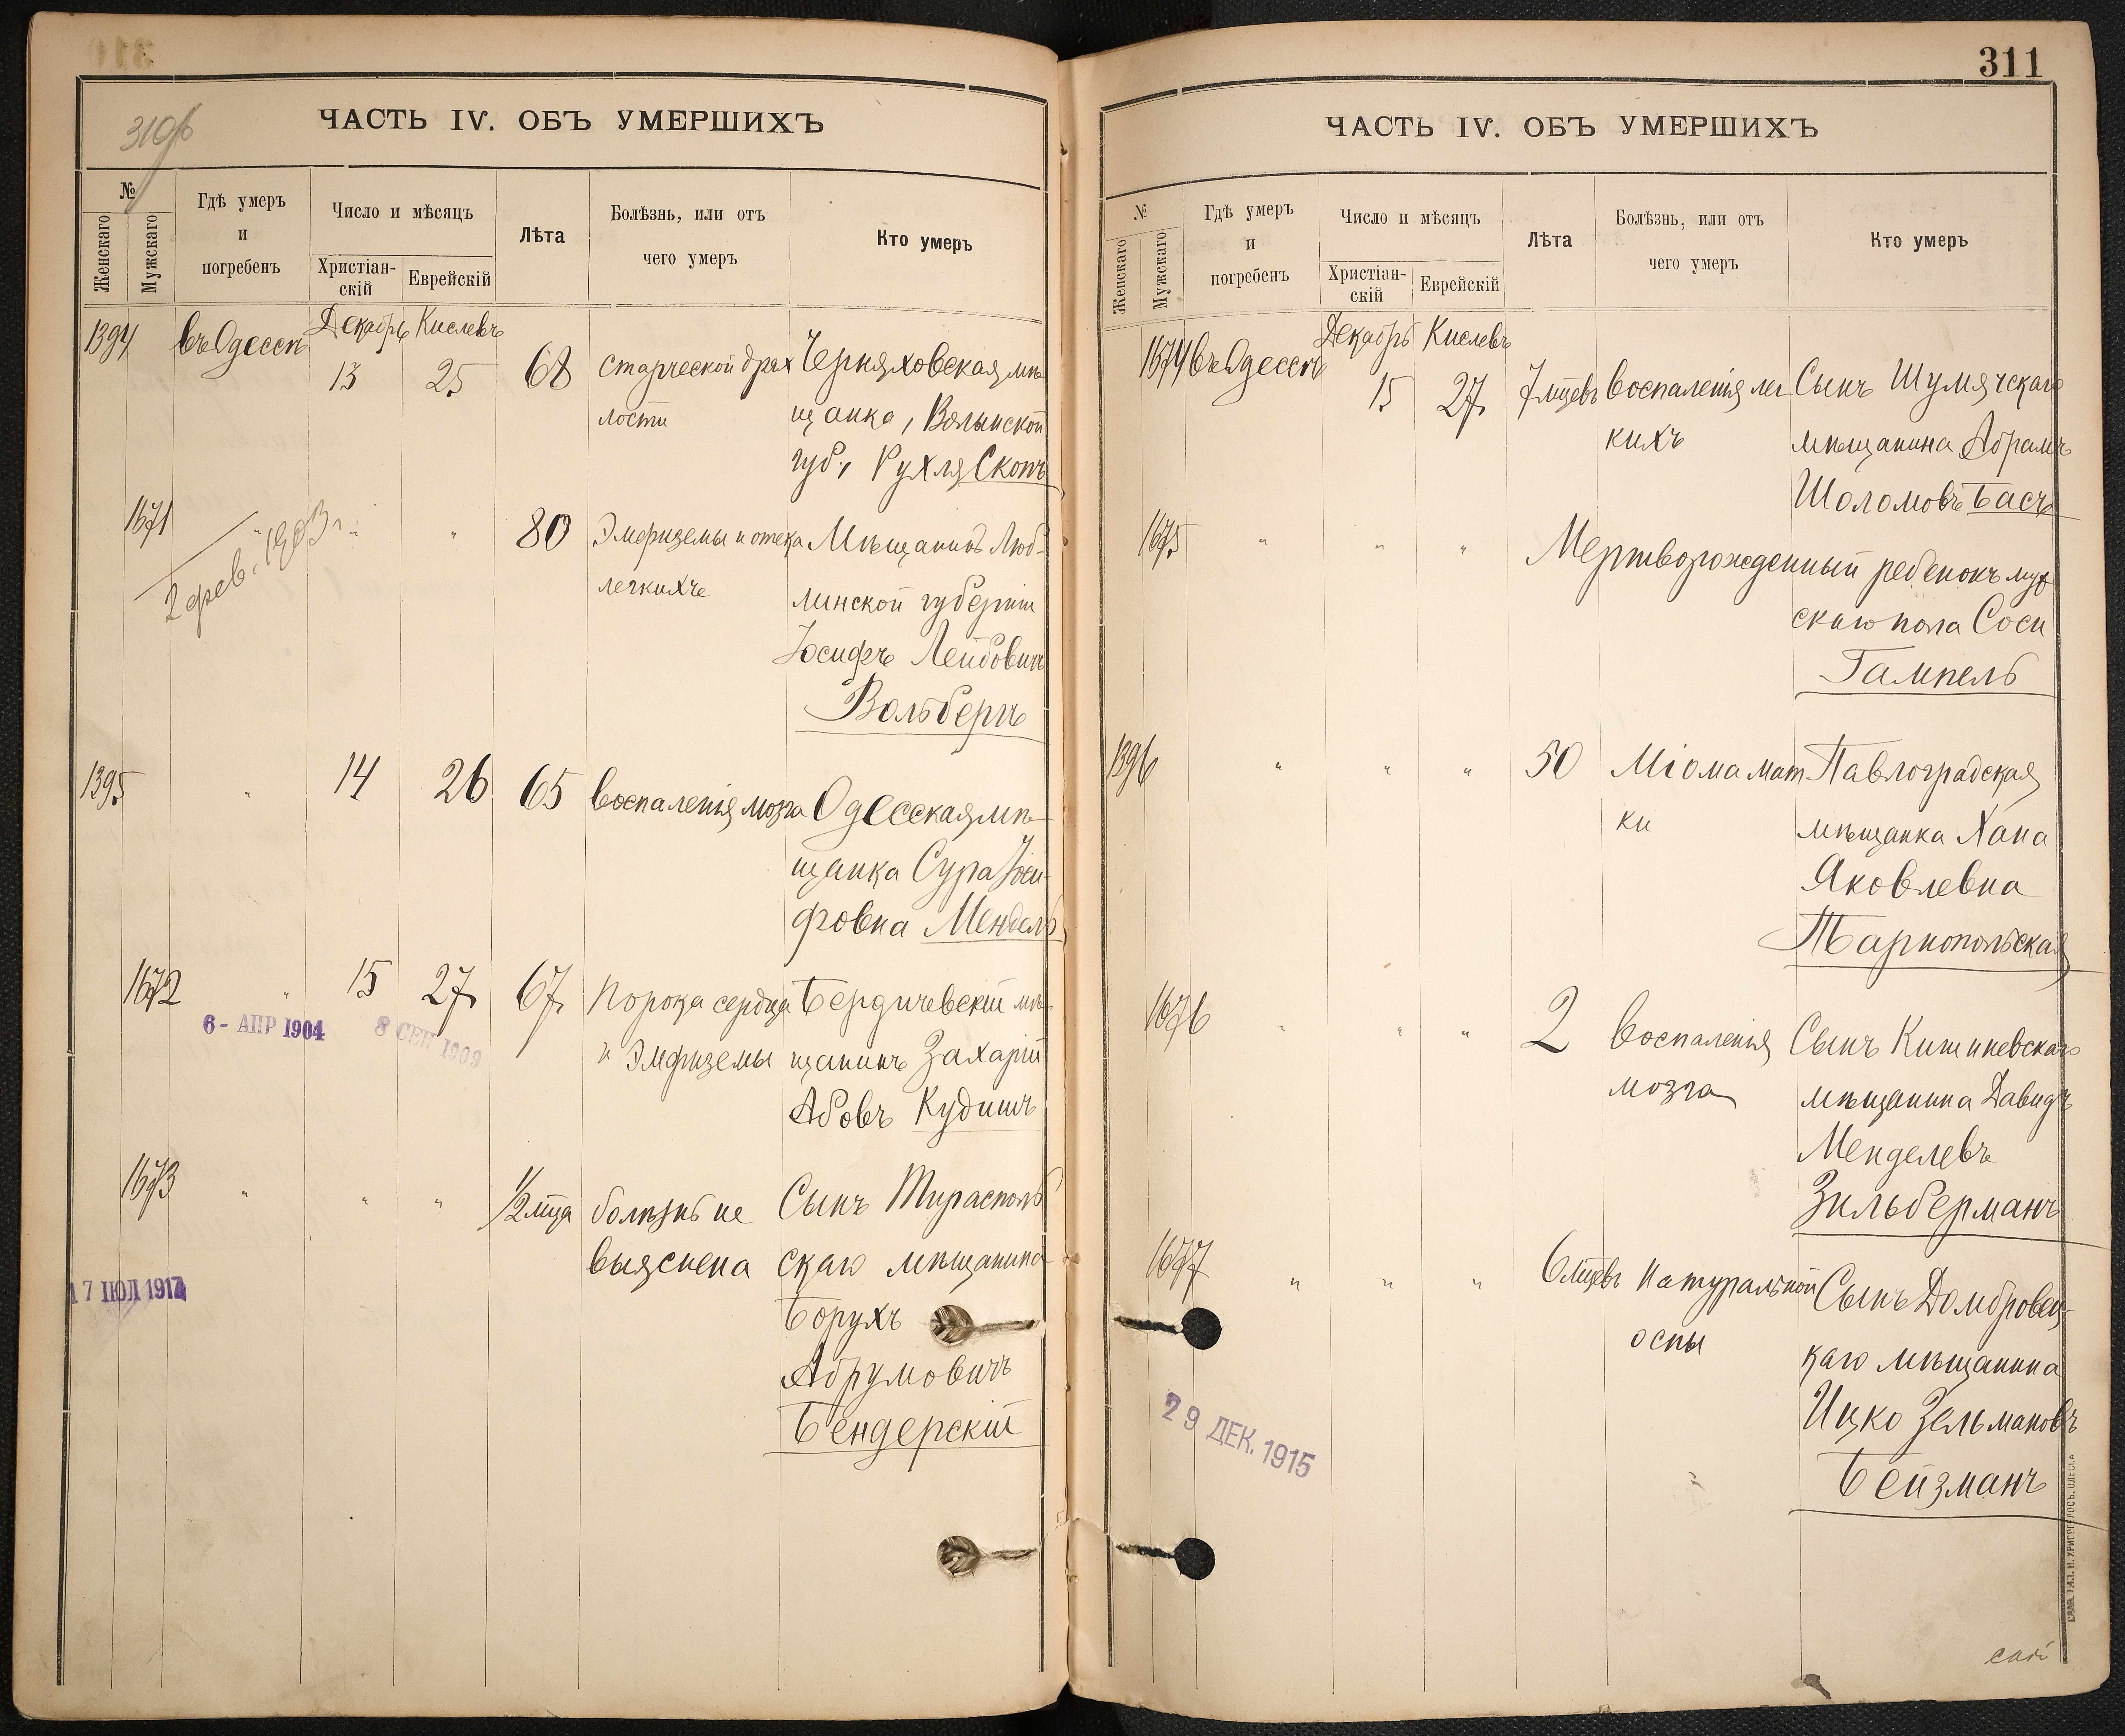 310б
ЧАСТЬ IV. ОБЪ УМЕРШИХЪ
№
Женскаго
Мужскаго
Гдѣ умеръ
и
погребенъ
Число и мѣсяцъ
Христіан-
скій
Еврейскій
Лѣта
Болѣзнь, или отъ
чего умеръ
Кто умеръ
Декабрь Кислевъ
1394 въ Одессѣ 13 25 68 Старческой дрях Черняховская мѣ
лости щанка, Волынской
губ., Рухля Скопъ
1671 " " " 80 Эмфиземы и отека Мѣщанинъ Люб-
2 фев. 1903 г.
легкихъ линской губерніи
Іосифъ Лейбовичъ
Вольбергъ
1395 " 14 26 65 Воспаленія мозга Одесская мѣ-
щанка Сура Іоси-
фовна Мендель
1672 " 15 27 67 Порока сердца Бердичевскій мѣ-
6 - АПР 1904 8 СЕН 1909
и Эмфиземы щанинъ Захарій
Абовъ Кудишъ
1673 " " " 1/2 мца болѣзнь не Сынъ Тирасполь
выяснена скаго мѣщанина
17 ІЮЛ 1914
Борухъ
Абрумовичъ
Бендерскій
311
ЧАСТЬ IV. ОБЪ УМЕРШИХЪ
№
Женскаго
Мужскаго
Гдѣ умеръ
и
погребенъ
Число и мѣсяцъ
Христіан-
скій
Еврейскій
Лѣта
Болѣзнь, или отъ
чего умеръ
Кто умеръ
Декабрь Кислевъ
1674 въ Одессѣ 15 27 7 мцевъ Воспаленія лег Сынъ Шумячскаго
кихъ мѣщанина Абрамъ
Шоломовъ Басъ
1675 " " " Мертворожденный ребенокъ муж
скаго пола Соси
Гампель
1396 " " " 50 Міома мат Павлоградская
ки мѣщанка Хана
Яковлевна
Тарнопольская
1676 " " " 2 Воспаленія Сынъ Кишиневскаго
мозга мѣщанина Давидъ
Менделевъ
Зильберманъ
1677 " " " 6 мцевъ Натуральной Сынъ Домбровец-
оспы каго мѣщанина
Ицко Зельмановъ
Бейзманъ
29 ДЕК. 1915